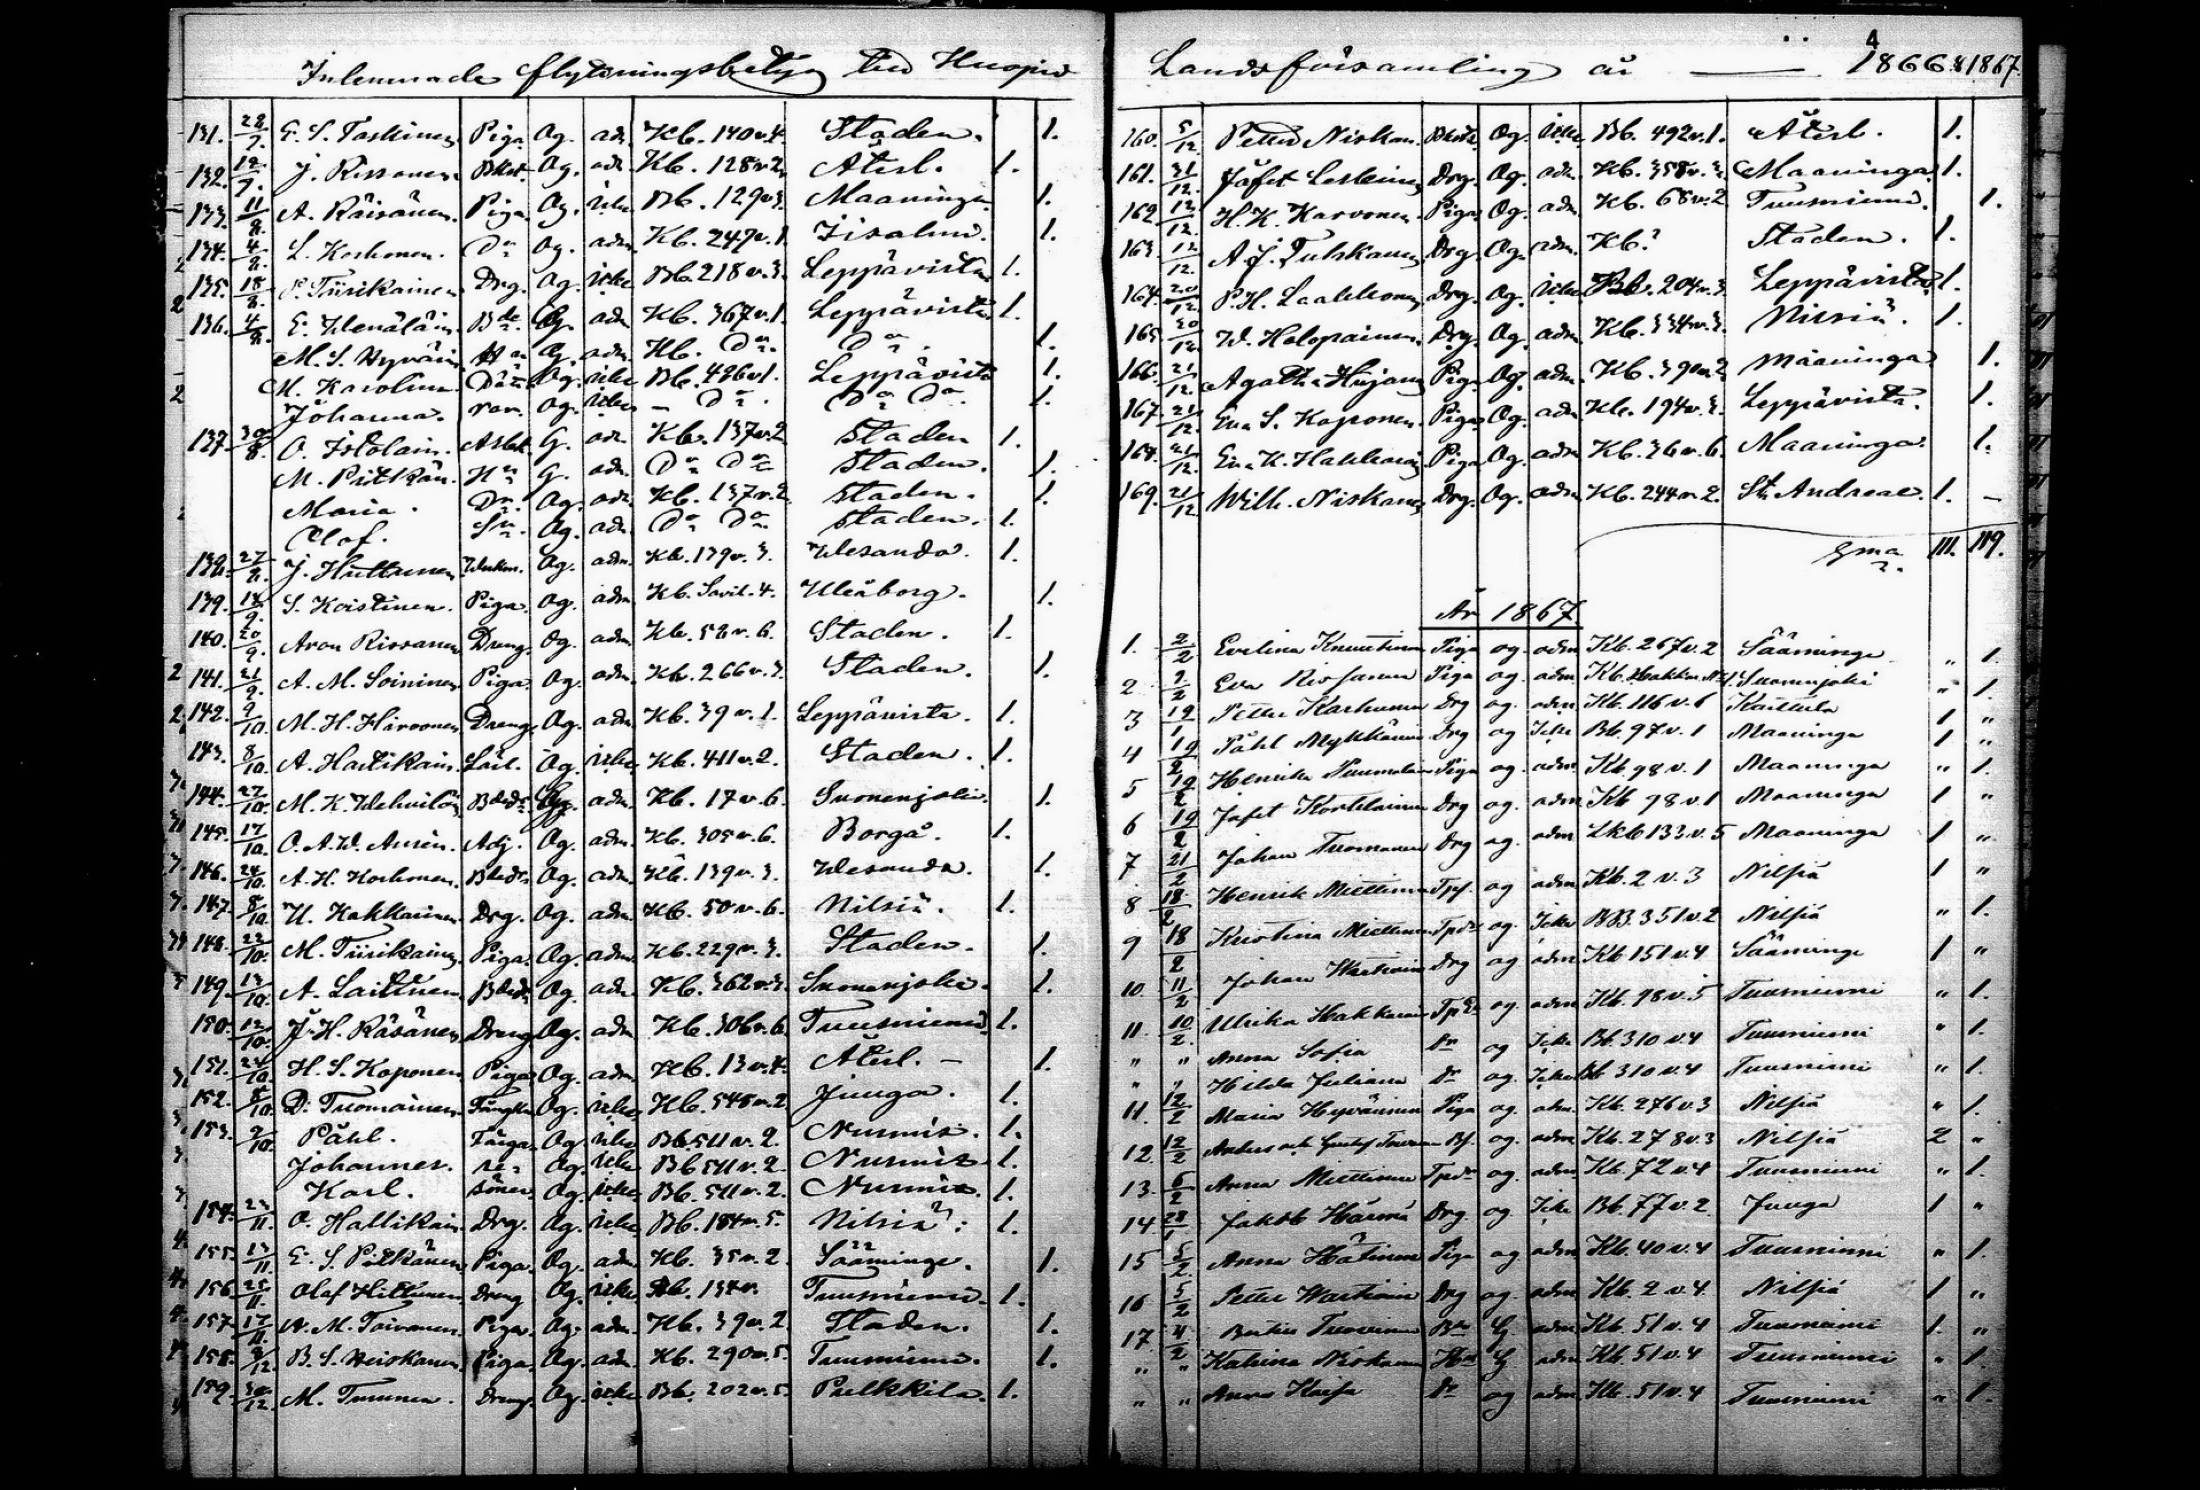 Inlemnade flyttningsbetyg till Kuopio
131. 28/7. E. S. Taskinen Piga Og. adm. Kb. 140 v. 4. Staden. 1.
132. 12/7. J. Rissanen Bkst. Og. adm. Kb. 128 v. 2. Återl. 1.
133. 11/8. A. Räisänen. Piga Og. icke Bb. 129 v. 3. Maaninga. 1.
134. 4/8. L. Korhonen. Do Og. adm. Kb. 247 v. 1. Iisalmi. 1.
135. 18/8. P. Tiirikainen Drg. Og. icke Bb. 218 v. 3. Leppävirta 1.
136. 4/8. E. Wenäläin. Bde G. adm. Kb. 367 v. 1. Leppävirta 1.
M. S. Hyvärin Hu G. adm. Kb. Do. Do. 1.
M. Karolina Og. icke Bb. 426 v. 1. Leppävirta 1.
Johanna. Og. icke – Do. Do Do. 1.
137. 30/8. O. Istolain. G. adm. Kb. 137 v. 2 Staden 1.
M. Pitkän. Hu G. adm. Do Do Staden. 1.
Maria. Dr. Og. adm. Kb. 137 v. 2 Staden. 1.
Olof. Sn. Og. adm. Do Do. Staden. 1.
138. 27/8. J. Huttunen Og. adm. Kb. 139 v. 3. Wesanda. 1.
139. 12/9. S. Koistinen. Piga. Og. adm. Kb. Savil. 4. Uleåborg. 1.
140. 20/9. Aron Rissanen Dreng. Og. adm. Kb. 52 v. 6. Staden. 1.
2 141. 21/9. A. M. Soininen Piga. Og. adm. Kb. 266 v. 3. Staden. 1.
2 142. 9/10. M. H. Hirvonen Dreng Og. adm. Kb. 39 v. 1. Leppävirta. 1.
143. 8/10. A. Hartikain. Og. icke Kb. 411 v. 2. Staden. 1.
144. 27/10. M. K. Wehviläi Bdedr. adm. Kb. 17 v. 6. Suonenjoki. 1.
145. 17/10. O. A. W. Adj. Og. adm. Kb. 305 v. 6. Borgå. 1.
146. 24/10. A. H. Korhonen. Og. adm. Kb. 139 v. 3. Wesanda. 1.
147. 8/10. U. Hakkarainen Drg. Og. adm. Kb. 50 v. 6. Nilsiä. 1.
148. 22/10. M. Tiirikainen Piga. Og. adm. Kb. 229 v. 3. Staden. 1.
149. 13/10. A. Laittinen Og. adm. Kb. 362 v. 3. Suonenjoki. 1.
150. 12/10. J. H. Räsänen Dreng Og. adm. Kb. 306 v. 6. Tuusniemi. 1.
151. 24/10. H. S. Koponen Piga Og. adm. Kb. 13 v. 4. Återl. – 1.
152. 8/10. D. Tuomainen Og. icke Kb. 548 v. 2 Juuga. 1.
153. 9/10. Påhl. Og. icke Bb. 511 v. 2. Nurmis. 1.
Johannes. Og. icke Bb. 511 v. 2. Nurmis 1.
Karl. söner Og. icke Bb. 511 v. 2. Nurmis. 1.
154. 23/11. O. Hallikain. Drg. Og. icke Bb. 184 v. 5. Nilsiä: 1.
155. 13/11. E. S. Pitkänen Piga. Og. adm. Kb. 35 v. 2. Sääminge. 1.
156. 25/11. Olof Hiltunen Dreng Og. icke Bb. 134 v. Tuusniemi. 1.
157. 17/11. A. M. Toivanen Piga Og. adm. Kb. 39 v. 2 Staden. 1.
158. 8/12. B. S. Heiskanen Piga Og. adm. Kb. 290 v. 5. Tuusniemi. 1.
159. 30/12. M. Turunen. Dreng. Og. icke Bb. 202 v. 5. Pulkkila. 1.
Landsförsamling år — 1866 & 1867. 4
160. 5/12. Petter Niskan. Og. icke Bb. 492 v. 1. Återl. 1.
161. 31/12. Jafet Leskinen Drg. Og. adm. Kb. 358 v. 3. Maaninga. 1.
162. 12/12. H. K. Karvonen. Piga Og. adm. Kb. 68 v. 2 Tuusniemi. 1.
163. 12/12. A. J. Tutskanen Drg. Og. adm. Kb.? Staden. 1.
164. 20/12. P. H. Laakkonen Drg. Og. icke Bb. 204 v. 3. Leppävirta 1.
165. 30/12. W. Holopainen. Drg. Og. adm. Kb. 334 v. 3. Nilsiä. 1.
166. 21/12. Agatha Piga Og. adm. Kb. 390 v. 2 Maaninga. 1.
167. 21/12. Eva S. Koponen. Piga Og. adm. Kb. 194 v. 3. Leppävirta. 1.
168. 21/12. Eva K. Piga Og. adm. Kb. 36 v. 6. Maaninga. 1.
169. 21/12. Wilh. Niskanen Drg. Og. adm. Kb. 244 v. 2. St. Andreae. 1. –
Sma 111. 119.
År 1867
1. 2/2 Evelina Knuutinen Piga og. adm Kb. 267 v. 2 Sääminge „ 1.
2 9/2 Eva Rissanen Piga og. adm Kb. Suonenjoki „ 1.
3 19/1 Petter Karhunen Drg og. adm Kb. 116 v. 6 Karttula 1 „
4 19/2 Påhl Mykkänen Drg og Icke Bb. 97 v. 1 Maaninga 1 „
5 19/2 Henrika Piga og. adm Kb. 98 v. 1 Maaninga „ 1.
6 19/2 Jafet Kortelainen Drg og. adm Kb 98 v. 1 Maaninga 1 „
7 21/2 Johan Tuomainen Drg og. adm Lkb 133 v. 5 Maaninga 1 „
8 18/2 Henrik Miettinen og adm Kb. 2 v. 3 Nilsiä 1 „
9 18/2 Kristina Miettinen og. Icke BB. 351 v. 2 Nilsiä „ 1.
10. 11/2 Johan Wartiain Drg og adm Kb 151 v. 4 Sääminge 1 „
11. 10/2 Ulrika Hakkarain og. adm Kb. 98 v. 5 Tuusniemi „ 1.
„ „ Anna Sofia Dr og Icke Bb. 310 v. 4 Tuusniemi „ 1.
„ „ Hilda Juliana Dr og. Icke Bb 310 v. 4 Tuusniemi „ 1.
11. 12/2 Maria Hyvärinen Piga og. adm. Kb. 276 v. 3 Nilsiä „ 1.
12. 12/2 Anders och Gustaf og. adm. Kb. 278 v. 3 Nilsiä 2 „
13. 6/2 Anna Miettinen og. adm Kb. 72 v. 4 Tuusniemi „ 1.
14. 28/1 Jakob Härmä Drg. og. Icke Bb. 77 v. 2. Juuga 1 „
15 5/2 Anna Hätinen Piga og adm Kb. 40 v. 4 Tuusniemi „ 1.
16 5/2 Petter Wartiain Drg og. adm Kb. 2 v. 4. Nilsiä 1 „
17. 4/2 G. adm Kb. 51 v. 4 Tuusniemi 1. „
„ „ Katrina Niskanen Hu G adm Kb. 51 v. 4 Tuusniemi „ 1.
„ „ Anna Kaisa Dr og adm Kb. 51 v. 4 Tuusniemi „ 1.